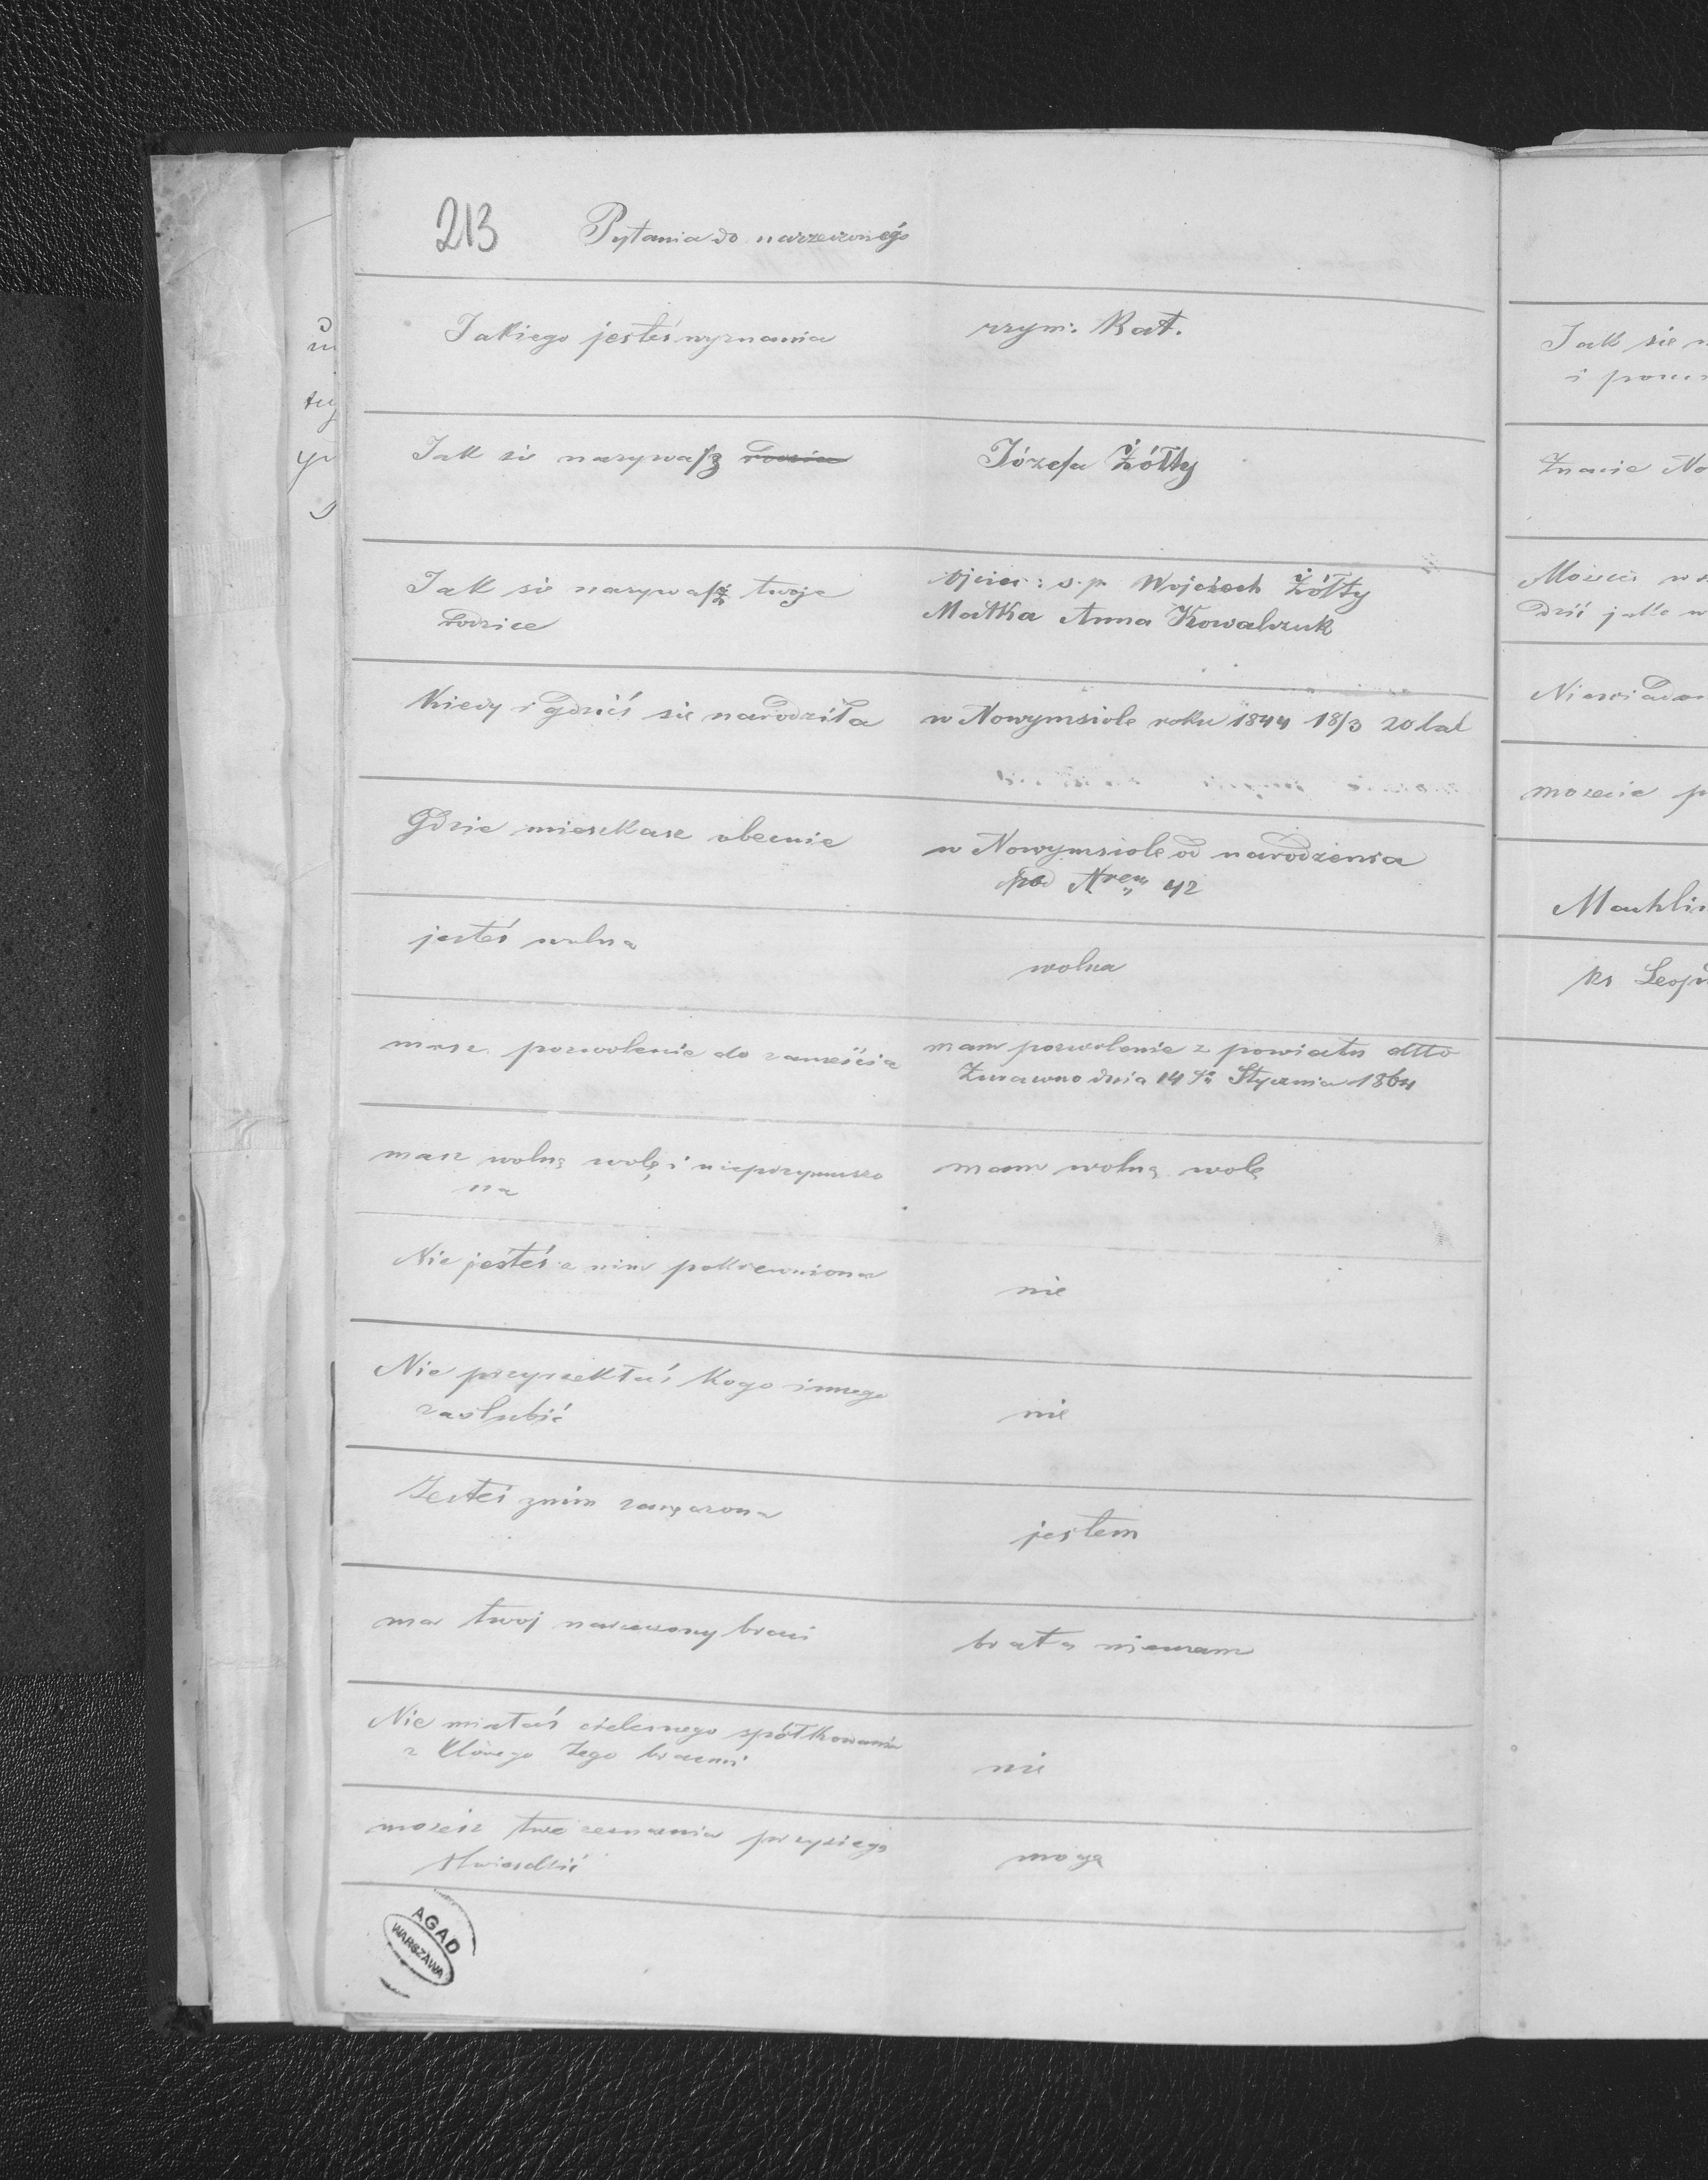 213 Pytania do narzeczonégo
Jakiego jesteś wyznania
rzym: Kat.
Jak sie nazywasz rodzice
Józefa Żółty
Jak sie nazywasz twoje
rodzice
Ojciec: s. p. Wojciech Żółty
Matka Anna Kowalczuk
Kiedy i gdzieś sie narodziła
w Nowymsiole roku 1844 18/3 20 lat
Gdzie mieszkasz obecnie
w Nowymsiole od narodzenia
pod Nrem 42
jesteś wolna
wolna
masz pozwolenie do zamęścia
mam pozwolenie z powiatu dtto
Żurawno dnia 14go Stycznia 1864
masz wolną wolę i nieprzymuszo
na
mam wolną wolę
Nie jesteś z nim pokrewniona
nie
Nie przyrzekłaś Kogo innego
zaslubić
nie
Jesteś znim zaręczona
jestem
ma twoj narzeczony braci
brata niemam
Nie miałaś cielesnego spółkowania
z którego Jego braćmi
nie
możesz twe zeznania przysiego
stwierdzić
mogę
AGAD
WARSZAWA
Jak sie
Znacie
Możecie
Mozecie
Ks Leop